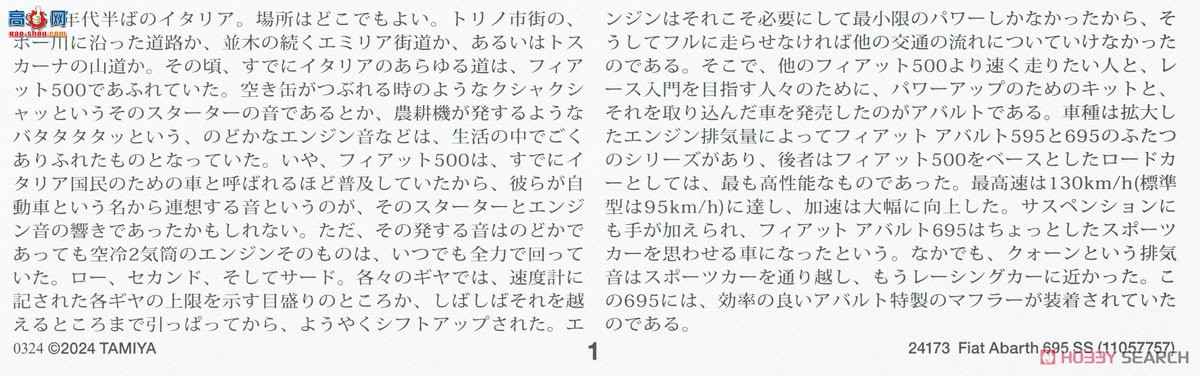 年代半ばのイタリア。場所はどこでもよい。トリノ市街の、
ポー川に沿った道路か、並木の続くエミリア街道か、あるいはトス
カーナの山道か。その頃、すでにイタリアのあらゆる道は、フィア
ット500であふれていた。空き缶がつぶれる時のようなクシャクシ
ャッというそのスターターの音であるとか、農耕機が発するような
バタタタタッという、のどかなエンジン音などは、生活の中でごく
ありふれたものとなっていた。いや、フィアット500は、すでにイ
タリア国民のための車と呼ばれるほど普及していたから、彼らが自
動車という名から連想する音というのが、そのスターターとエンジ
ン音の響きであったかもしれない。ただ、その発する音はのどかで
あっても空冷2気筒のエンジンそのものは、いつでも全力で回って
いた。ロー、セカンド、そしてサード。各々のギヤでは、速度計に
記された各ギヤの上限を示す目盛りのところか、しばしばそれを越
えるところまで引っぱってから、ようやくシフトアップされた。エ
ンジンはそれこそ必要にして最小限のパワーしかなかったから、そ
うしてフルに走らせなければ他の交通の流れについていけなかった
のである。そこで、他のフィアット500より速く走りたい人と、レ
ース入門を目指す人々のために、パワーアップのためのキットと、
それを取り込んだ車を発売したのがアバルトである。車種は拡大し
たエンジン排気量によってフィアット アバルト595と695のふたつ
のシリーズがあり、後者はフィアット500をベースとしたロードカ
ーとしては、最も高性能なものであった。最高速は130km/h(標準
型は95km/h)に達し、加速は大幅に向上した。サスペンションに
も手が加えられ、フィアット アバルト695はちょっとしたスポーツ
カーを思わせる車になったという。なかでも、クォーンという排気
音はスポーツカーを通り越し、もうレーシングカーに近かった。こ
の695には、効率の良いアバルト特製のマフラーが装着されていた
のである。
0324 ©2024 TAMIYA
1
24173 Fiat Abarth 695 SS (11057757)
HOBBY SEARCH
高高网
gao-shou.com